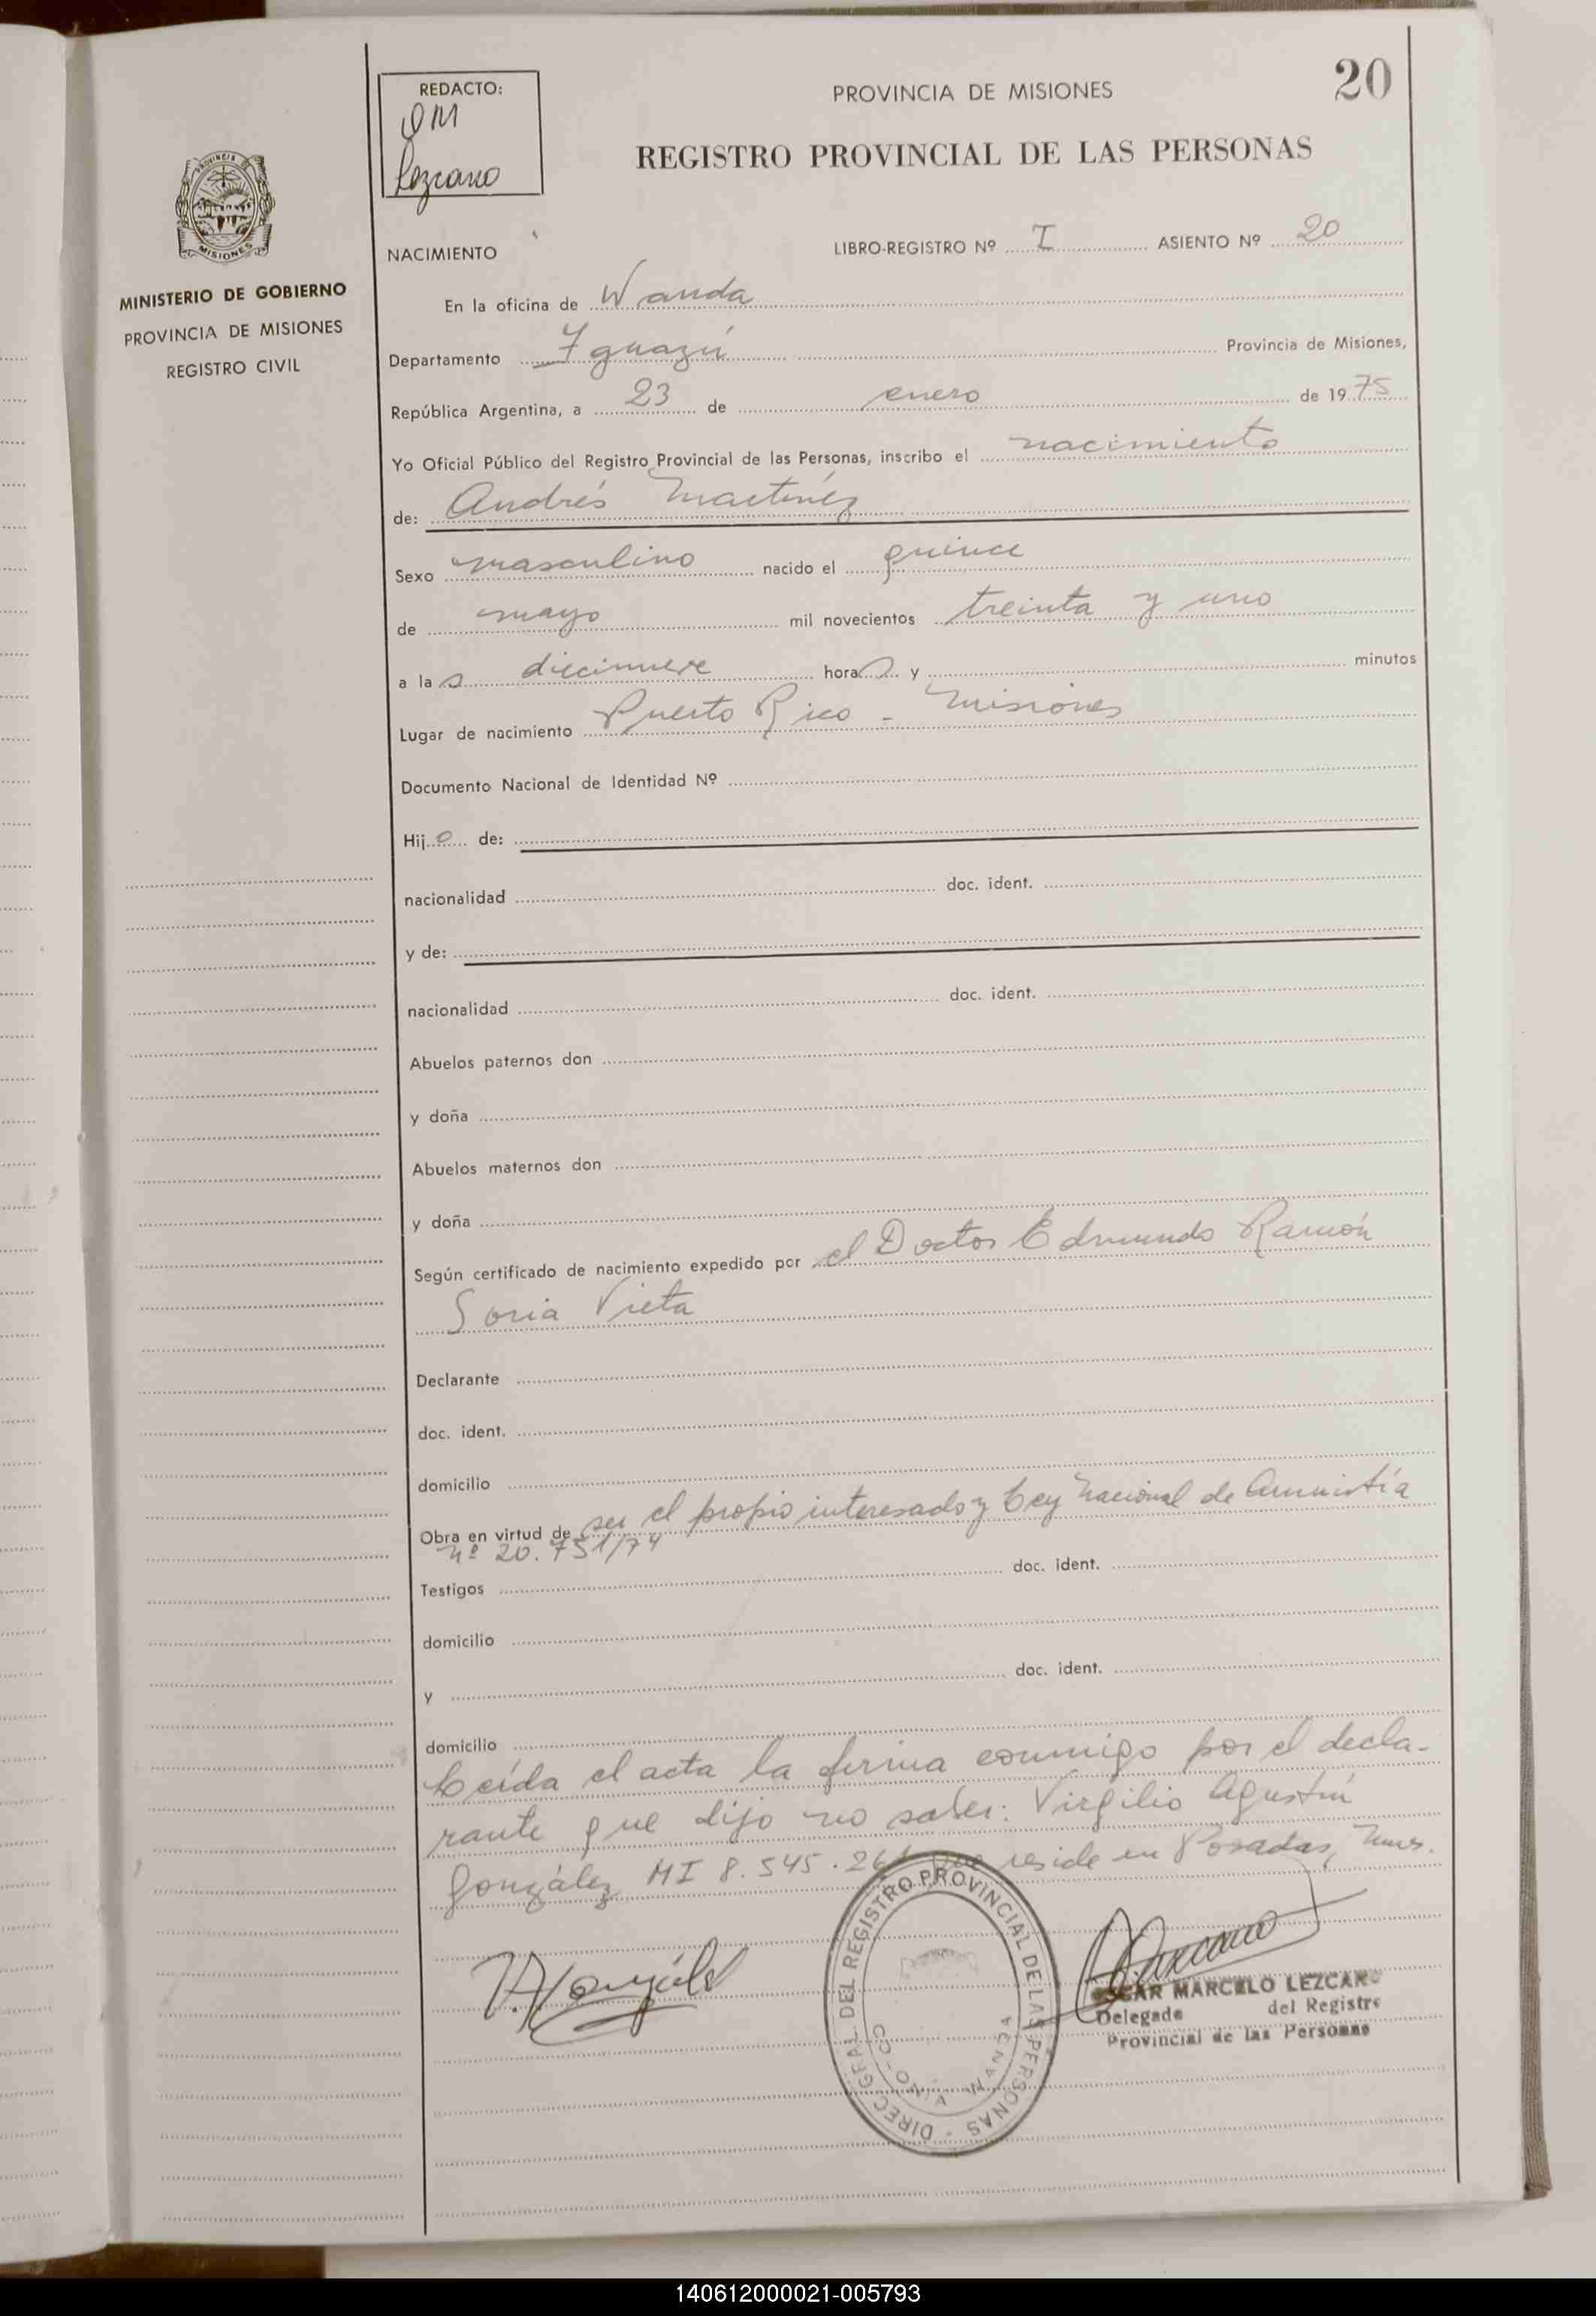 REDACTO:
OM
Lezcano
20
PROVINCIA DE MISIONES
REGISTRO PROVINCIAL DE LAS PERSONAS
PROVINCIA
MISIONES
MINISTERIO DE GOBIERNO
PROVINCIA DE MISIONES
REGISTRO CIVIL
NACIMIENTO
LIBRO-REGISTRO Nº I ASIENTO Nº 20
En la oficina de Wanda
Departamento Iguazú Provincia de Misiones,
República Argentina, a 23 de enero de 1975
Yo Oficial Público del Registro Provincial de las Personas, inscribo el nacimiento
de: Andrés Martínez
Sexo masculino nacido el quince
de mayo mil novecientos treinta y uno
a las diecinueve horas y minutos
Lugar de nacimiento Puerto Rico - Misiones
Documento Nacional de Identidad Nº
Hijo de:
nacionalidad doc. ident.
y de:
nacionalidad doc. ident.
Abuelos paternos don
y doña
Abuelos maternos don
y doña
Según certificado de nacimiento expedido por el Doctor Edmundo Ramón
Soria Vieta
Declarante
doc. ident.
domicilio
Obra en virtud de ser el propio interesado y Ley Nacional de Amnistía
nº 20.751/74
Testigos doc. ident.
domicilio
y doc. ident.
domicilio
Leída el acta la firma conmigo por el decla-
rante que dijo no saber: Virgilio Agustín
González MI 8.545.261 que reside en Posadas, Mnes.
V.A. González
DIREC. GRAL. DEL REGISTRO PROVINCIAL DE LAS PERSONAS
COLONIA WANDA
OSCAR MARCELO LEZCANO
Delegado del Registro
Provincial de las Personas
140612000021-005793